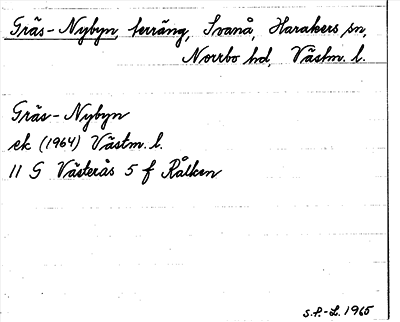 Gräs-Nybyn, terräng, Svanå, Harakers sn,
Norrbo hd, Västm. l.
Gräs-Nybyn
ek (1964) Västm. l.
11 G Västerås 5 f Rålken
S.F.-L. 1965